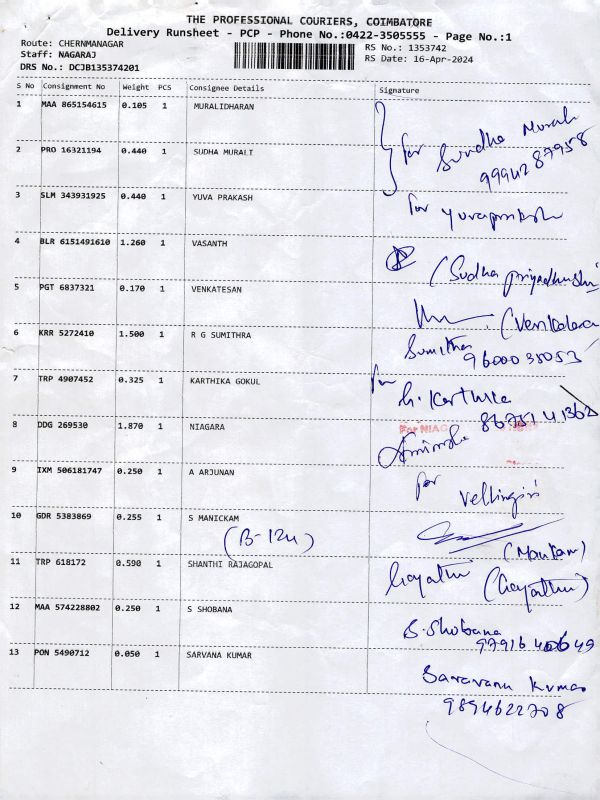 THE PROFESSIONAL COURIERS, COIMBATORE
Delivery Runsheet - PCP - Phone No.:0422-3505555 - Page No.:1
Route: CHERNMANAGAR
RS No.: 1353742
Staff: NAGARAJ
RS Date: 16-Apr-2024
DRS No.: DCJB135374201
S No Consignment No Weight PCS Consignee Details Signature
1 MAA 865154615 0.105 1 MURALIDHARAN
for Sundha Murali
2 PRO 16321194 0.440 1 SUDHA MURALI
9994287958
3 SLM 343931925 0.440 1 YUVA PRAKASH
for yuvaprakash
4 BLR 6151491610 1.260 1 VASANTH
(Sudha priyadhushi
5 PGT 6837321 0.170 1 VENKATESAN
(Venkatesa
6 KRR 5272410 1.500 1 R G SUMITHRA
Sumithra
9600035053
7 TRP 4907452 0.325 1 KARTHIKA GOKUL
for G. Karthika
8675141362
8 DDG 269530 1.870 1 NIAGARA
For NIAG
9 IXM 506181747 0.250 1 A ARJUNAN
for Vellingiri
10 GDR 5383869 0.255 1 S MANICKAM
(B-124)
(Manikam)
11 TRP 618172 0.590 1 SHANTHI RAJAGOPAL
Gayathri (Gayathri)
12 MAA 574228802 0.250 1 S SHOBANA
S.Shobana
9791640649
13 PON 5490712 0.050 1 SARVANA KUMAR
Saravana Kumar
9894622708